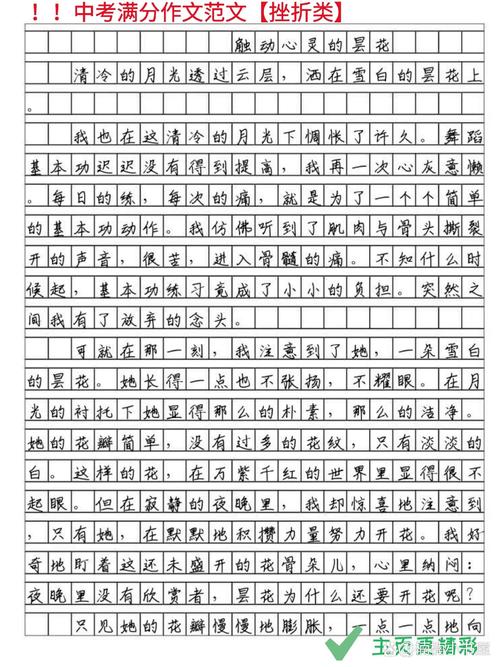 ！！中考满分作文范文【挫折类】
触动心灵的昙花
清冷的月光透过云层，洒在雪白的昙花上
。
我也在这清冷的月光下惆怅了许久。舞蹈
基本功迟迟没有得到提高，我再一次心灰意懒
。每日的练，每次的痛，就是为了一个个简单
的基本功动作。我仿佛听到了肌肉与骨头撕裂
开的声音，很苦，进入骨髓的痛。不知什么时
候起，基本功练习竟成了小小的负担。突然之
间我有了放弃的念头。
可就在那一刻，我注意到了她，一朵雪白
的昙花。她长得一点也不张扬，不耀眼。在月
光的衬托下她显得那么的朴素，那么的洁净。
她的花瓣简单，没有过多的花纹，只有淡淡的
白。这样的花，在万紫千红的世界里显得很不
起眼。但在寂静的夜晚里，我却惊喜地注意到
，只有她，在默默地积攒力量努力开花。我好
奇地盯着这还未盛开的花骨朵儿，心里纳闷：
夜晚里没有欣赏者，昙花为什么还要开花呢？
只见她的花瓣慢慢地膨胀，一点一点地向
主页更精彩